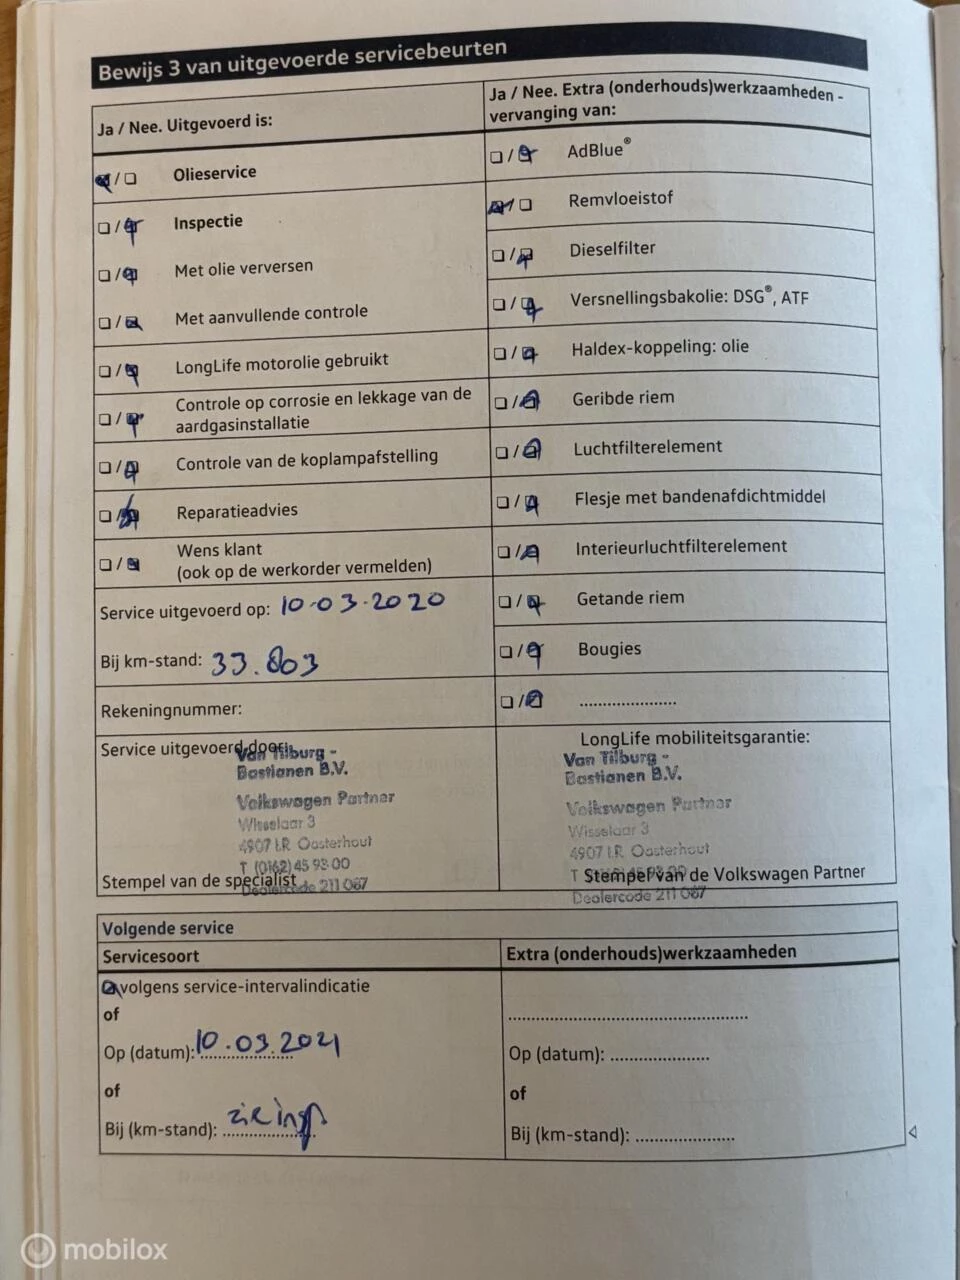 Bewijs 3 van uitgevoerde servicebeurten
Ja / Nee. Uitgevoerd is:
Olieservice
Inspectie
Met olie verversen
Met aanvullende controle
LongLife motorolie gebruikt
Controle op corrosie en lekkage van de
aardgasinstallatie
Controle van de koplampafstelling
Reparatieadvies
Wens klant
(ook op de werkorder vermelden)
Service uitgevoerd op: 10-03-2020
Bij km-stand: 33.803
Rekeningnummer:
Ja / Nee. Extra (onderhouds)werkzaamheden -
vervanging van:
AdBlue®
Remvloeistof
Dieselfilter
Versnellingsbakolie: DSG®, ATF
Haldex-koppeling: olie
Geribde riem
Luchtfilterelement
Flesje met bandenafdichtmiddel
Interieurluchtfilterelement
Getande riem
Bougies
....................
Service uitgevoerd door:
Van Tilburg -
Bastianen B.V.
Volkswagen Partner
Wisselaar 3
4907 LR Oosterhout
T (0162) 45 93 00
Dealercode 211 067
Stempel van de specialist
LongLife mobiliteitsgarantie:
Van Tilburg -
Bastianen B.V.
Volkswagen Partner
Wisselaar 3
4907 LR Oosterhout
T (0162) 45 93 00
Dealercode 211 067
Stempel van de Volkswagen Partner
Volgende service
Servicesoort
volgens service-intervalindicatie
of
Op (datum): 10.03.2021
of
Bij (km-stand): zie insp
Extra (onderhouds)werkzaamheden
..................................................
Op (datum): ....................
of
Bij (km-stand): ....................
mobilox